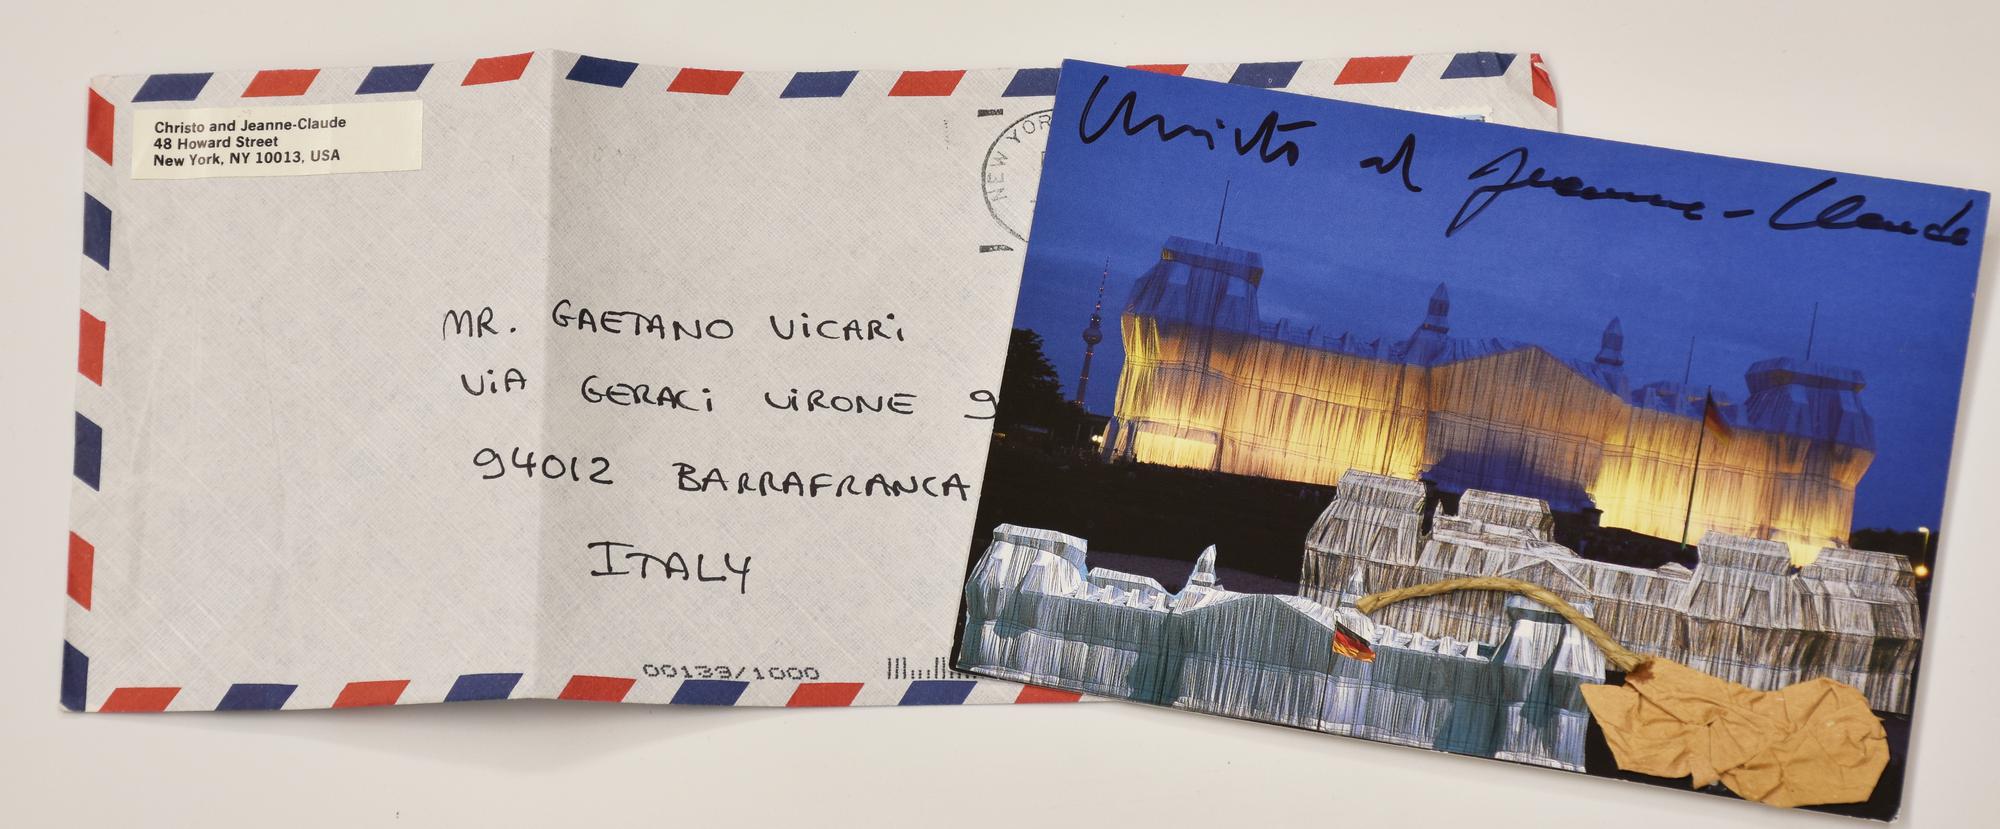 Christo and Jeanne-Claude
48 Howard Street
New York, NY 10013, USA
NEW YOR
MR. GAETANO VICARI
VIA GERACI VIRONE 9
94012 BARRAFRANCA
ITALY
00139/1000
Christo et Jeanne-Claude